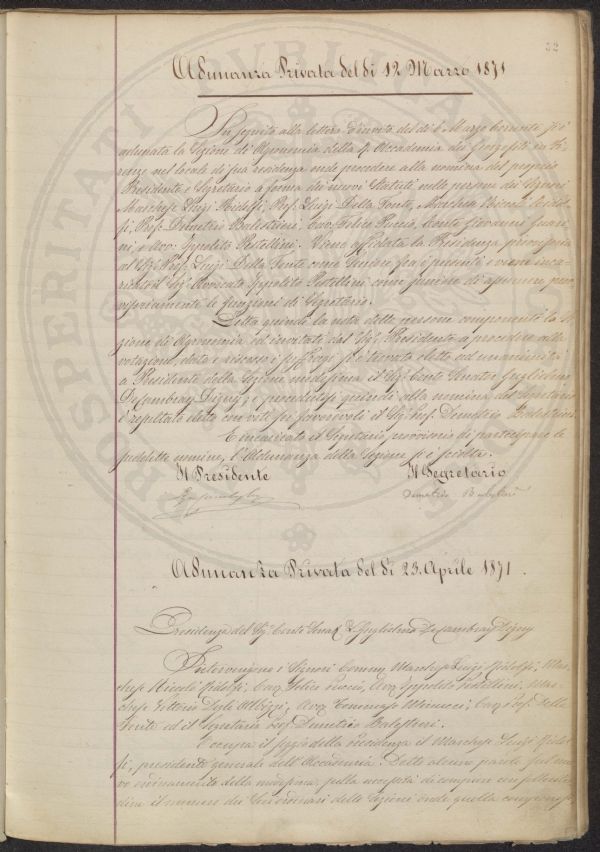 32
Adunanza Privata del dì 12 Marzo 1871
In seguito alla lettera d'invito del dì 6 Marzo corrente si è
adunata la Sezione di Agronomia della R. Accademia dei Georgofili in Fi-
renze nel locale di sua residenza onde procedere alla nomina del proprio
Presidente e Segretario a forma dei nuovi Statuti nelle persone dei Signori
Marchese Luigi Ridolfi, Prof. Luigi Della Fonte, Marchese Niccolò Ridol-
fi, Prof. Demetrio Balestrieri, Cav. Felice Puccio, Conte Giovanni
e Avv. Ippolito Pestellini. Viene affidata la Presidenza provvisoria
al Sig. Prof. Luigi Della Fonte come Seniore fra i presenti e viene inca-
ricato il Sig. Avvocato Ippolito Pestellini come juniore di assumere prov-
visoriamente le funzioni di Segretario.
Letta quindi la nota delle persone componenti la Se-
zione di Agronomia ed invitate dal Sig. Presidente a procedere alla
votazione, data e riscossi i suffragi si è trovato eletto ad unanimità
a Presidente della Sezione medesima il Sig. Conte Senatore Guglielmo
Decambray Digny; e procedutosi quindi alla nomina del Segretario
è resultato eletto con voti favorevoli il Sig. Prof. Demetrio Balestrieri.
E incaricato il Segretario provvisorio di partecipare le
suddette nomine, l'Adunanza della Sezione si è sciolta.
Il Presidente Il Segretario
Demetrio
Adunanza Privata del dì 23. Aprile 1871.
Presidenza del Sig. Conte Guglielmo De Cambray Digny
Intervengono i Signori Comm. Marchese Luigi Ridolfi, Mar-
chese Niccolò Ridolfi, Cav. Felice Puccio, Avv. Ippolito Pestellini, Mar-
chese Vittorio Degli Albizzi, Avv. Tommaso Minucci, Cav. Prof. Della
Fonte ed il Segretario Prof. Demetrio Balestrieri.
Occupa il seggio della Presidenza il Marchese Luigi Ridol-
fi, presidente generale dell'Accademia. Dette alcune parole sul nuo-
vo ordinamento della medesima, sulla necessità di
il numero dei Soci ordinari della Sezione onde quella
PROSPERITATI PUBLICAE